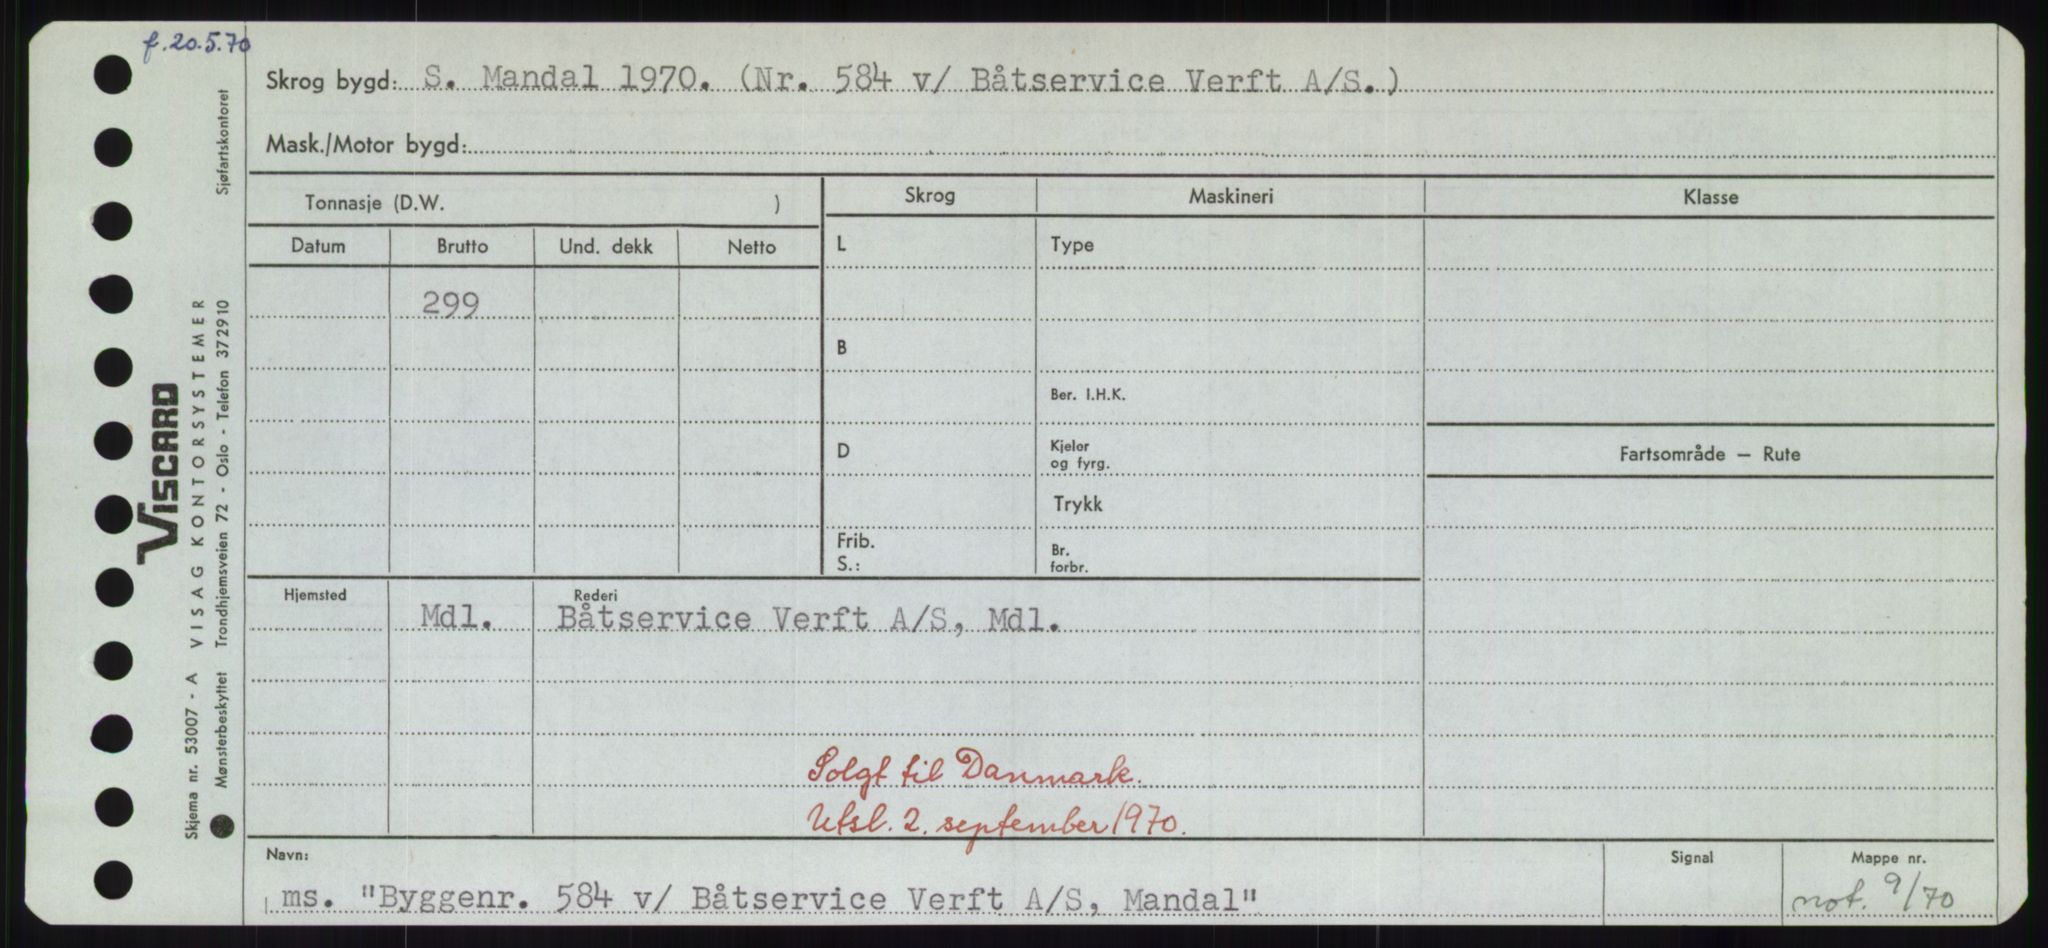 f. 20.5.70
Skrog bygd: S. Mandal 1970. (Nr. 584 v/ Båtservice Verft A/S.)
Mask./Motor bygd:
Tonnasje (D.W. )
Skrog
Maskineri
Klasse
Datum
Brutto
Und. dekk
Netto
L
Type
299
B
Ber. I.H.K.
D
Kjeler
og fyrg.
Fartsområde — Rute
Trykk
Frib.
S.:
Br.
forbr.
Hjemsted
Rederi
Mdl.
Båtservice Verft A/S, Mdl.
Solgt til Danmark.
Utsl. 2. september 1970.
Navn:
Signal
Mappe nr.
ms. "Byggenr. 584 v/ Båtservice Verft A/S, Mandal"
not. 9/70
VISCARD
Skjema nr. 53007 - A VISAG KONTORSYSTEMER
Mønsterbeskyttet Trondhjemsveien 72 - Oslo - Telefon 372910 Sjøfartskontoret